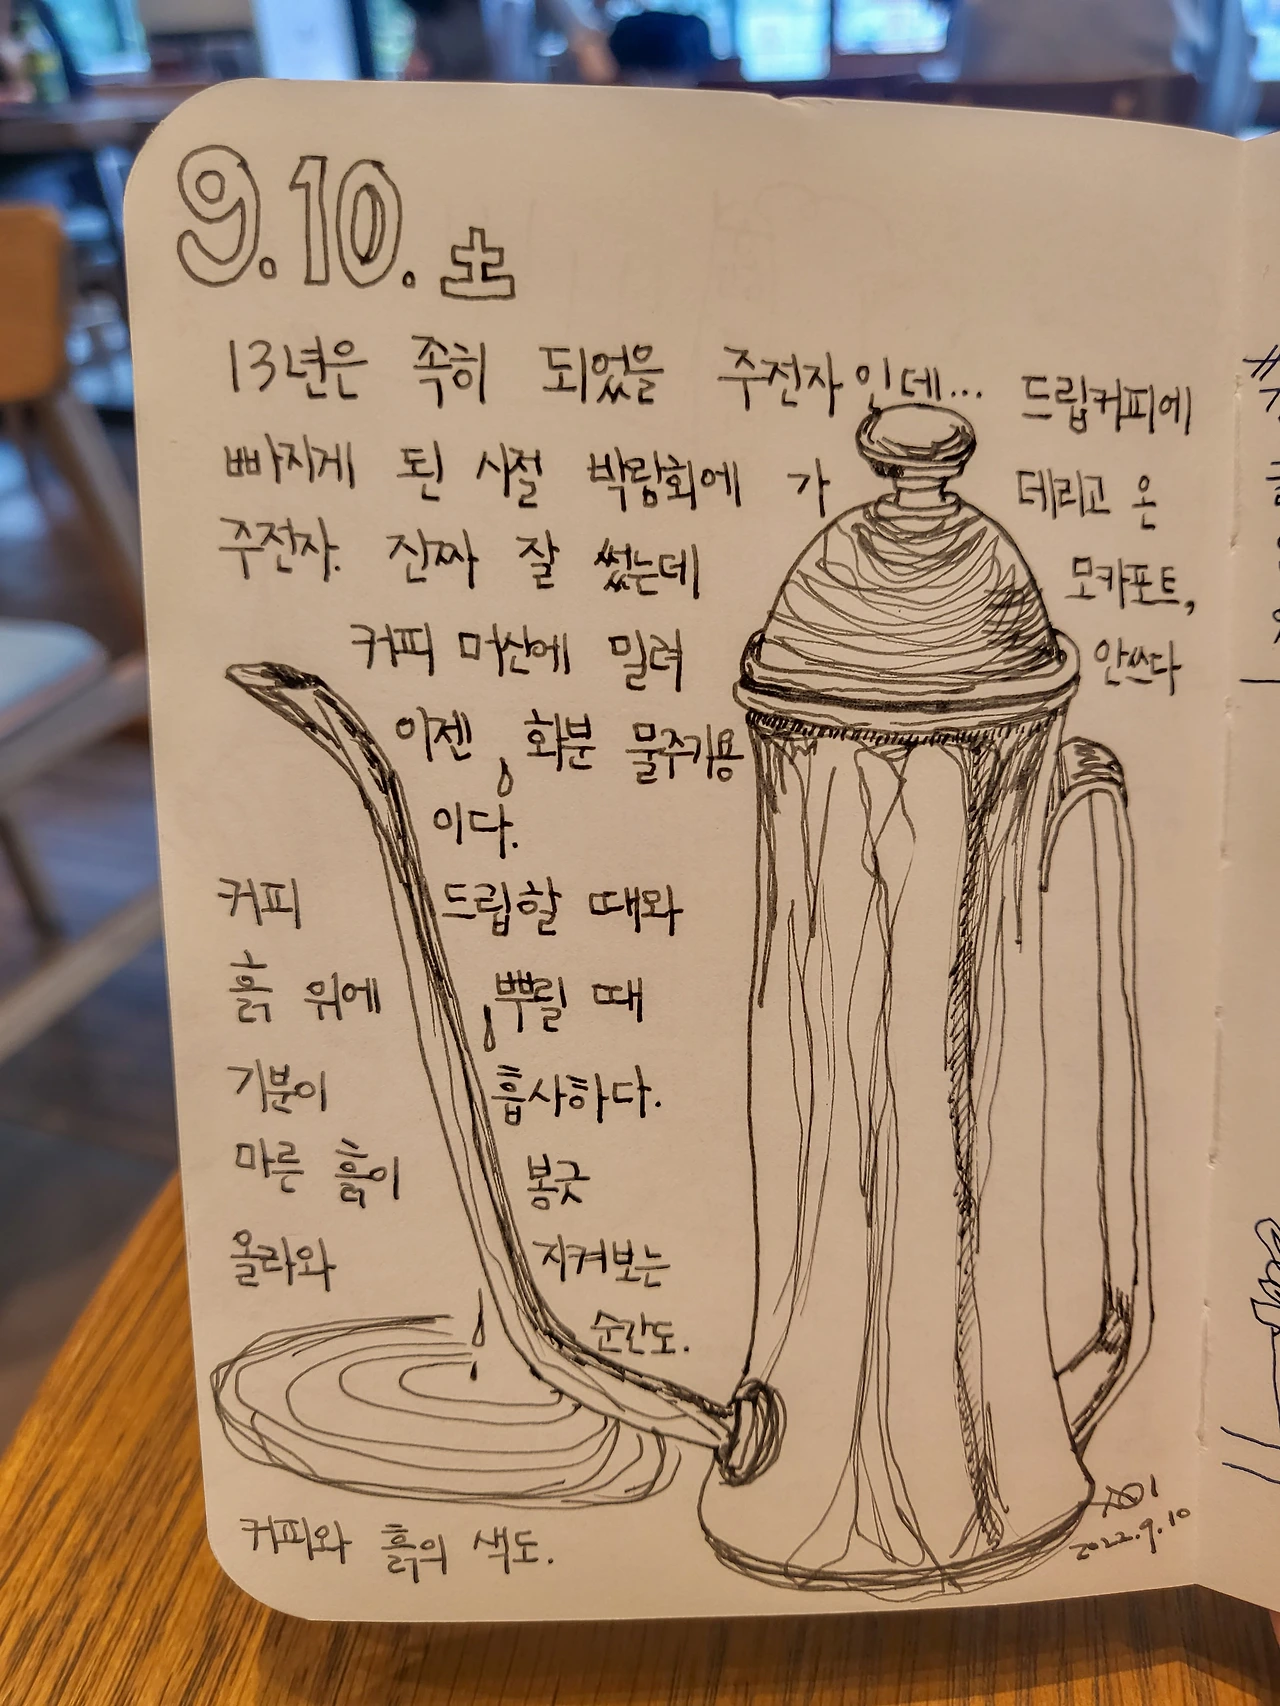 9.10. 土
13년은 족히 되었을 주전자인데... 드립커피에
빠지게 된 시절 박람회에 가 데리고 온
주전자. 진짜 잘 썼는데 모카포트,
커피 머신에 밀려 안쓰다
이젠 화분 물주기용
이다.
커피 드립할 때와
흙 위에 뿌릴 때
기분이 흡사하다.
마른 흙이 봉긋
올라와 지켜보는
순간도.
커피와 흙의 색도.
2022.9.10